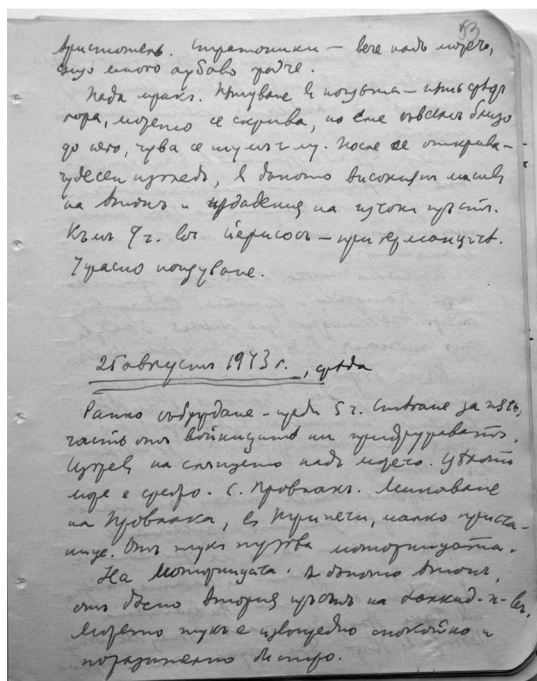 53
Аристотель. Стратоники – вече надъ морето,
също много хубаво градче.
Пада мракъ. Пътуване въ колата – презъ гора,
гора, морето се скрива, но сме съвсемъ близо
до него, чува се шумътъ му. После се открива
чудесен изгледъ, въ дъното високиятъ масивъ
на Атонъ и на източния пръстъ.
Къмъ 9 ч. въ Йерисосъ – при германците.
Ужасно нощуване.
25 августъ 1943 г., сряда
Ранно събуждане – преди 5 ч. Ставане за пътъ,
часть отъ войниците ни придружаватъ.
Изгрев на слънцето надъ морето. Цялото
море е сребро. С. Провлакъ. Минаване
на Провлака, въ Трипити, малко приста-
нище. Отъ тукъ тръгва моторницата.
На моторницата. Въ дъното Атонъ,
отъ дясно втория пръстъ на Халкид. п-въ.
Морето тукъ е извънредно спокойно и
поразително бистро.